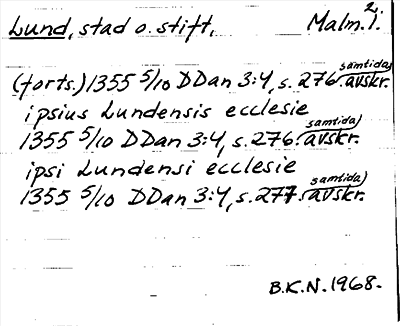 Lund, stad o. stift. Malm. 2.
(forts.) 1355 5/10 DDan 3:4, s. 276. samtida) avskr.
ipsius Lundensis ecclesie
1355 5/10 DDan 3:4, s. 276. samtida) avskr.
ipsi Lundensi ecclesie
1355 5/10 DDan 3:4, s. 277. samtida) avskr.
B.K.N. 1968.